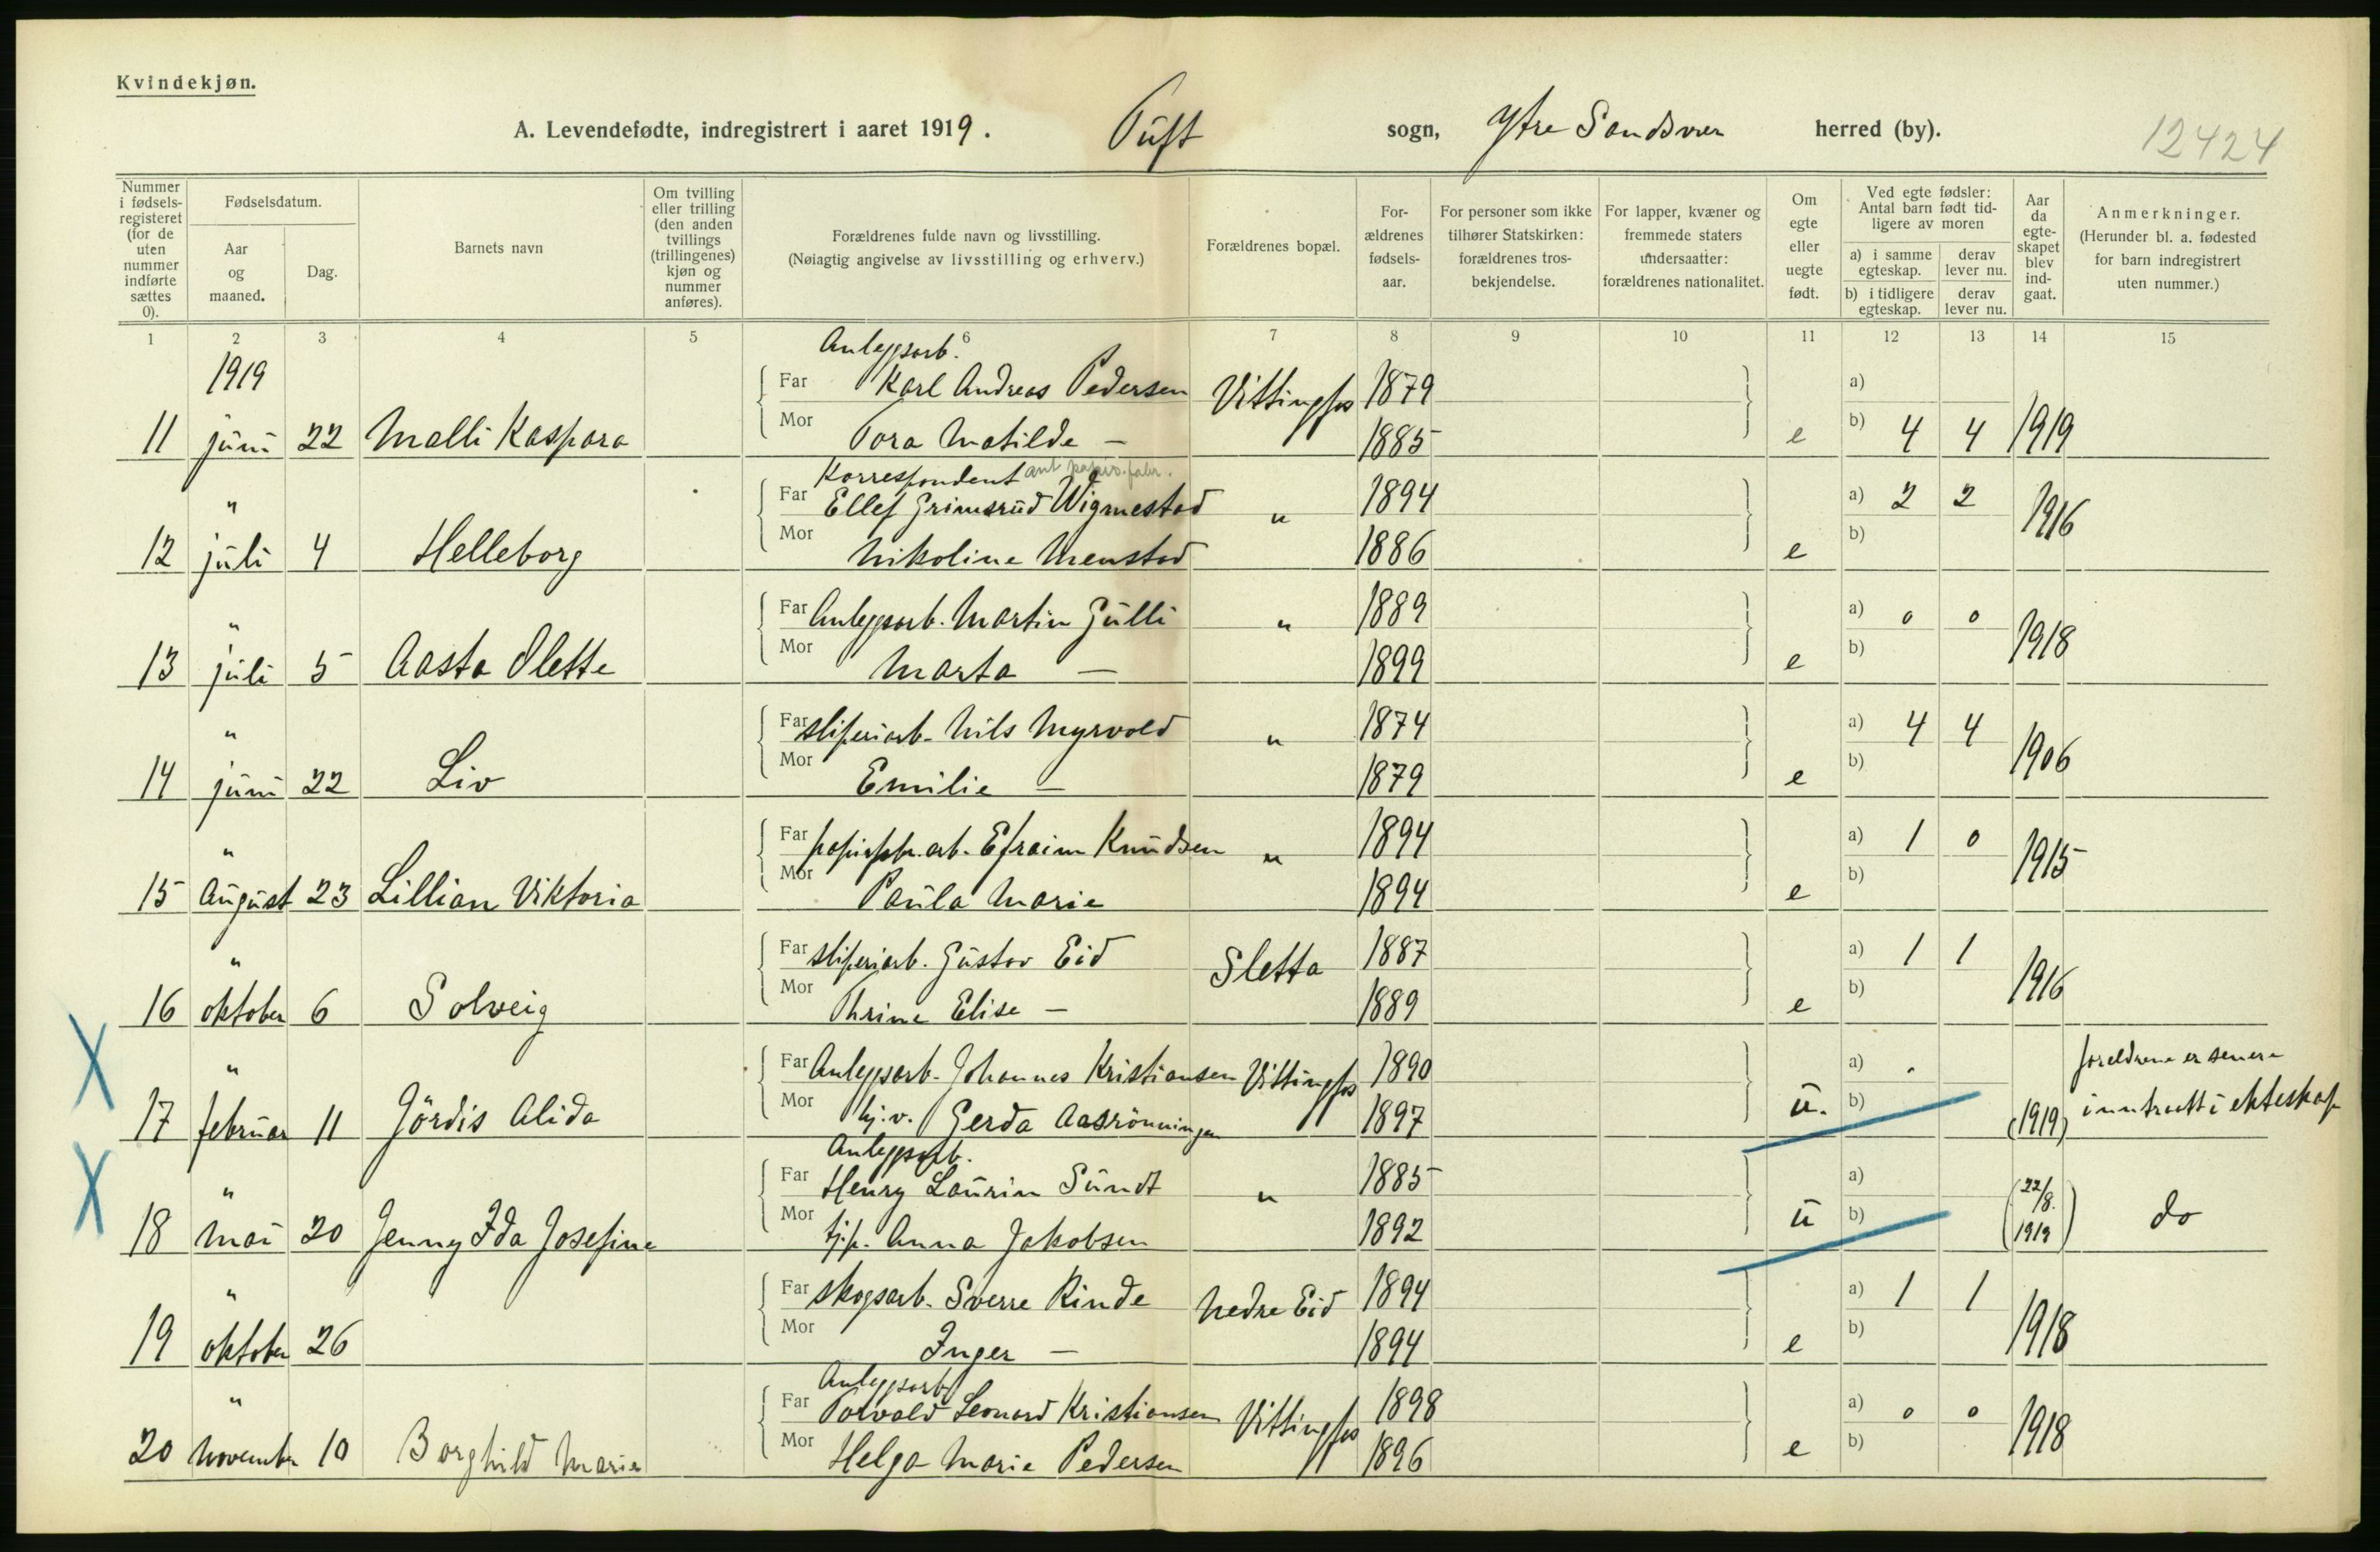 Kvindekjøn.
A. Levendefødte, indregistrert i aaret 1919. Tuft sogn, Ytre Sandsver herred (by). 12424
Nummer i fødsels-registeret (for de uten nummer indførte sættes 0).
Fødselsdatum.
Aar og maaned.
Dag.
Barnets navn
Om tvilling eller trilling (den anden tvillings (trillingenes) kjøn og nummer anføres).
Forældrenes fulde navn og livsstilling.
(Nøiagtig angivelse av livsstilling og erhverv.)
Forældrenes bopæl.
For-ældrenes fødsels-aar.
For personer som ikke tilhører Statskirken: forældrenes tros-bekjendelse.
For lapper, kvæner og fremmede staters undersaatter: forældrenes nationalitet.
Om egte eller uegte født.
Ved egte fødsler: Antal barn født tid-ligere av moren
a) i samme egteskap. derav lever nu.
b) i tidligere egteskap. derav lever nu.
Aar da egte-skapet blev ind-gaat.
Anmerkninger.
(Herunder bl. a. fødested for barn indregistrert uten nummer.)
1 2 3 4 5 6 7 8 9 10 11 12 13 14 15
1919 Anleggsarb.
Far Karl Andreas Pedersen Vittingfos 1879 a)
11 juni 22 Malli Kaspara Mor Tora Matilde — 1885 e b) 4 4 1919
Korrespondent
" Far Ellef Grimsrud Wigmestad " 1894 a) 2 2 1916
12 juli 4 Helleborg Mor Nikoline Menstad 1886 e b)
" Far Anleggsarb. Martin Gulli " 1889 a) 0 0 1918
13 juli 5 Aasta Olette Mor Marta — 1899 e b)
" Far sliperiarb. Nils Myrvold " 1874 a) 4 4 1906
14 juni 22 Liv Mor Emilie — 1879 e b)
" Far papirfabr. arb. Efraim Knudsen " 1894 a) 1 0 1915
15 August 23 Lillian Viktoria Mor Paula Marie 1894 e b)
" Far sliperiarb. Gustav Eid Sletta 1887 a) 1 1 1916
16 oktober 6 Solveig Mor Thrine Elise — 1889 e b)
" Far Anleggsarb. Johannes Kristiansen Vittingfos 1890 a) . foreldrene er senere
17 februar 11 Jördis Alida Mor tj.p. Gerda Aasrönningen 1897 u. b) (1919) inntraatt i ekteskap
Anleggsarb.
" Far Henry Laurin Sundt " 1885 a) (22/8.
18 mai 20 Jenny Ida Josefine Mor tj.p. Anna Jakobsen 1892 u b) 1919) do
" Far skogsarb. Sverre Rinde Nedre Eid 1894 a) 1 1 1918
19 oktober 26 Mor Inger — 1894 e b)
Anleggsarb.
" Far Torvald Leonard Kristiansen Vittingfos 1898 a) 0 0 1918
20 November 10 Borghild Marie Mor Helga Marie Pedersen 1896 e b)